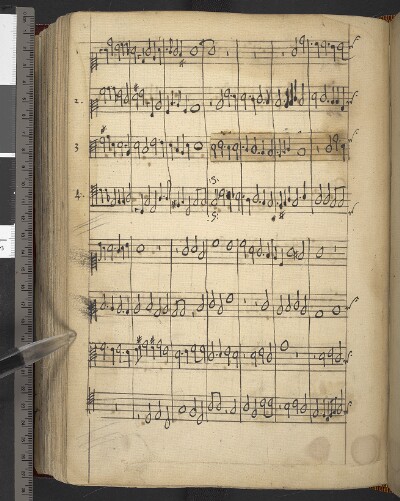 1.
2.
3
4.
:S:
:S: